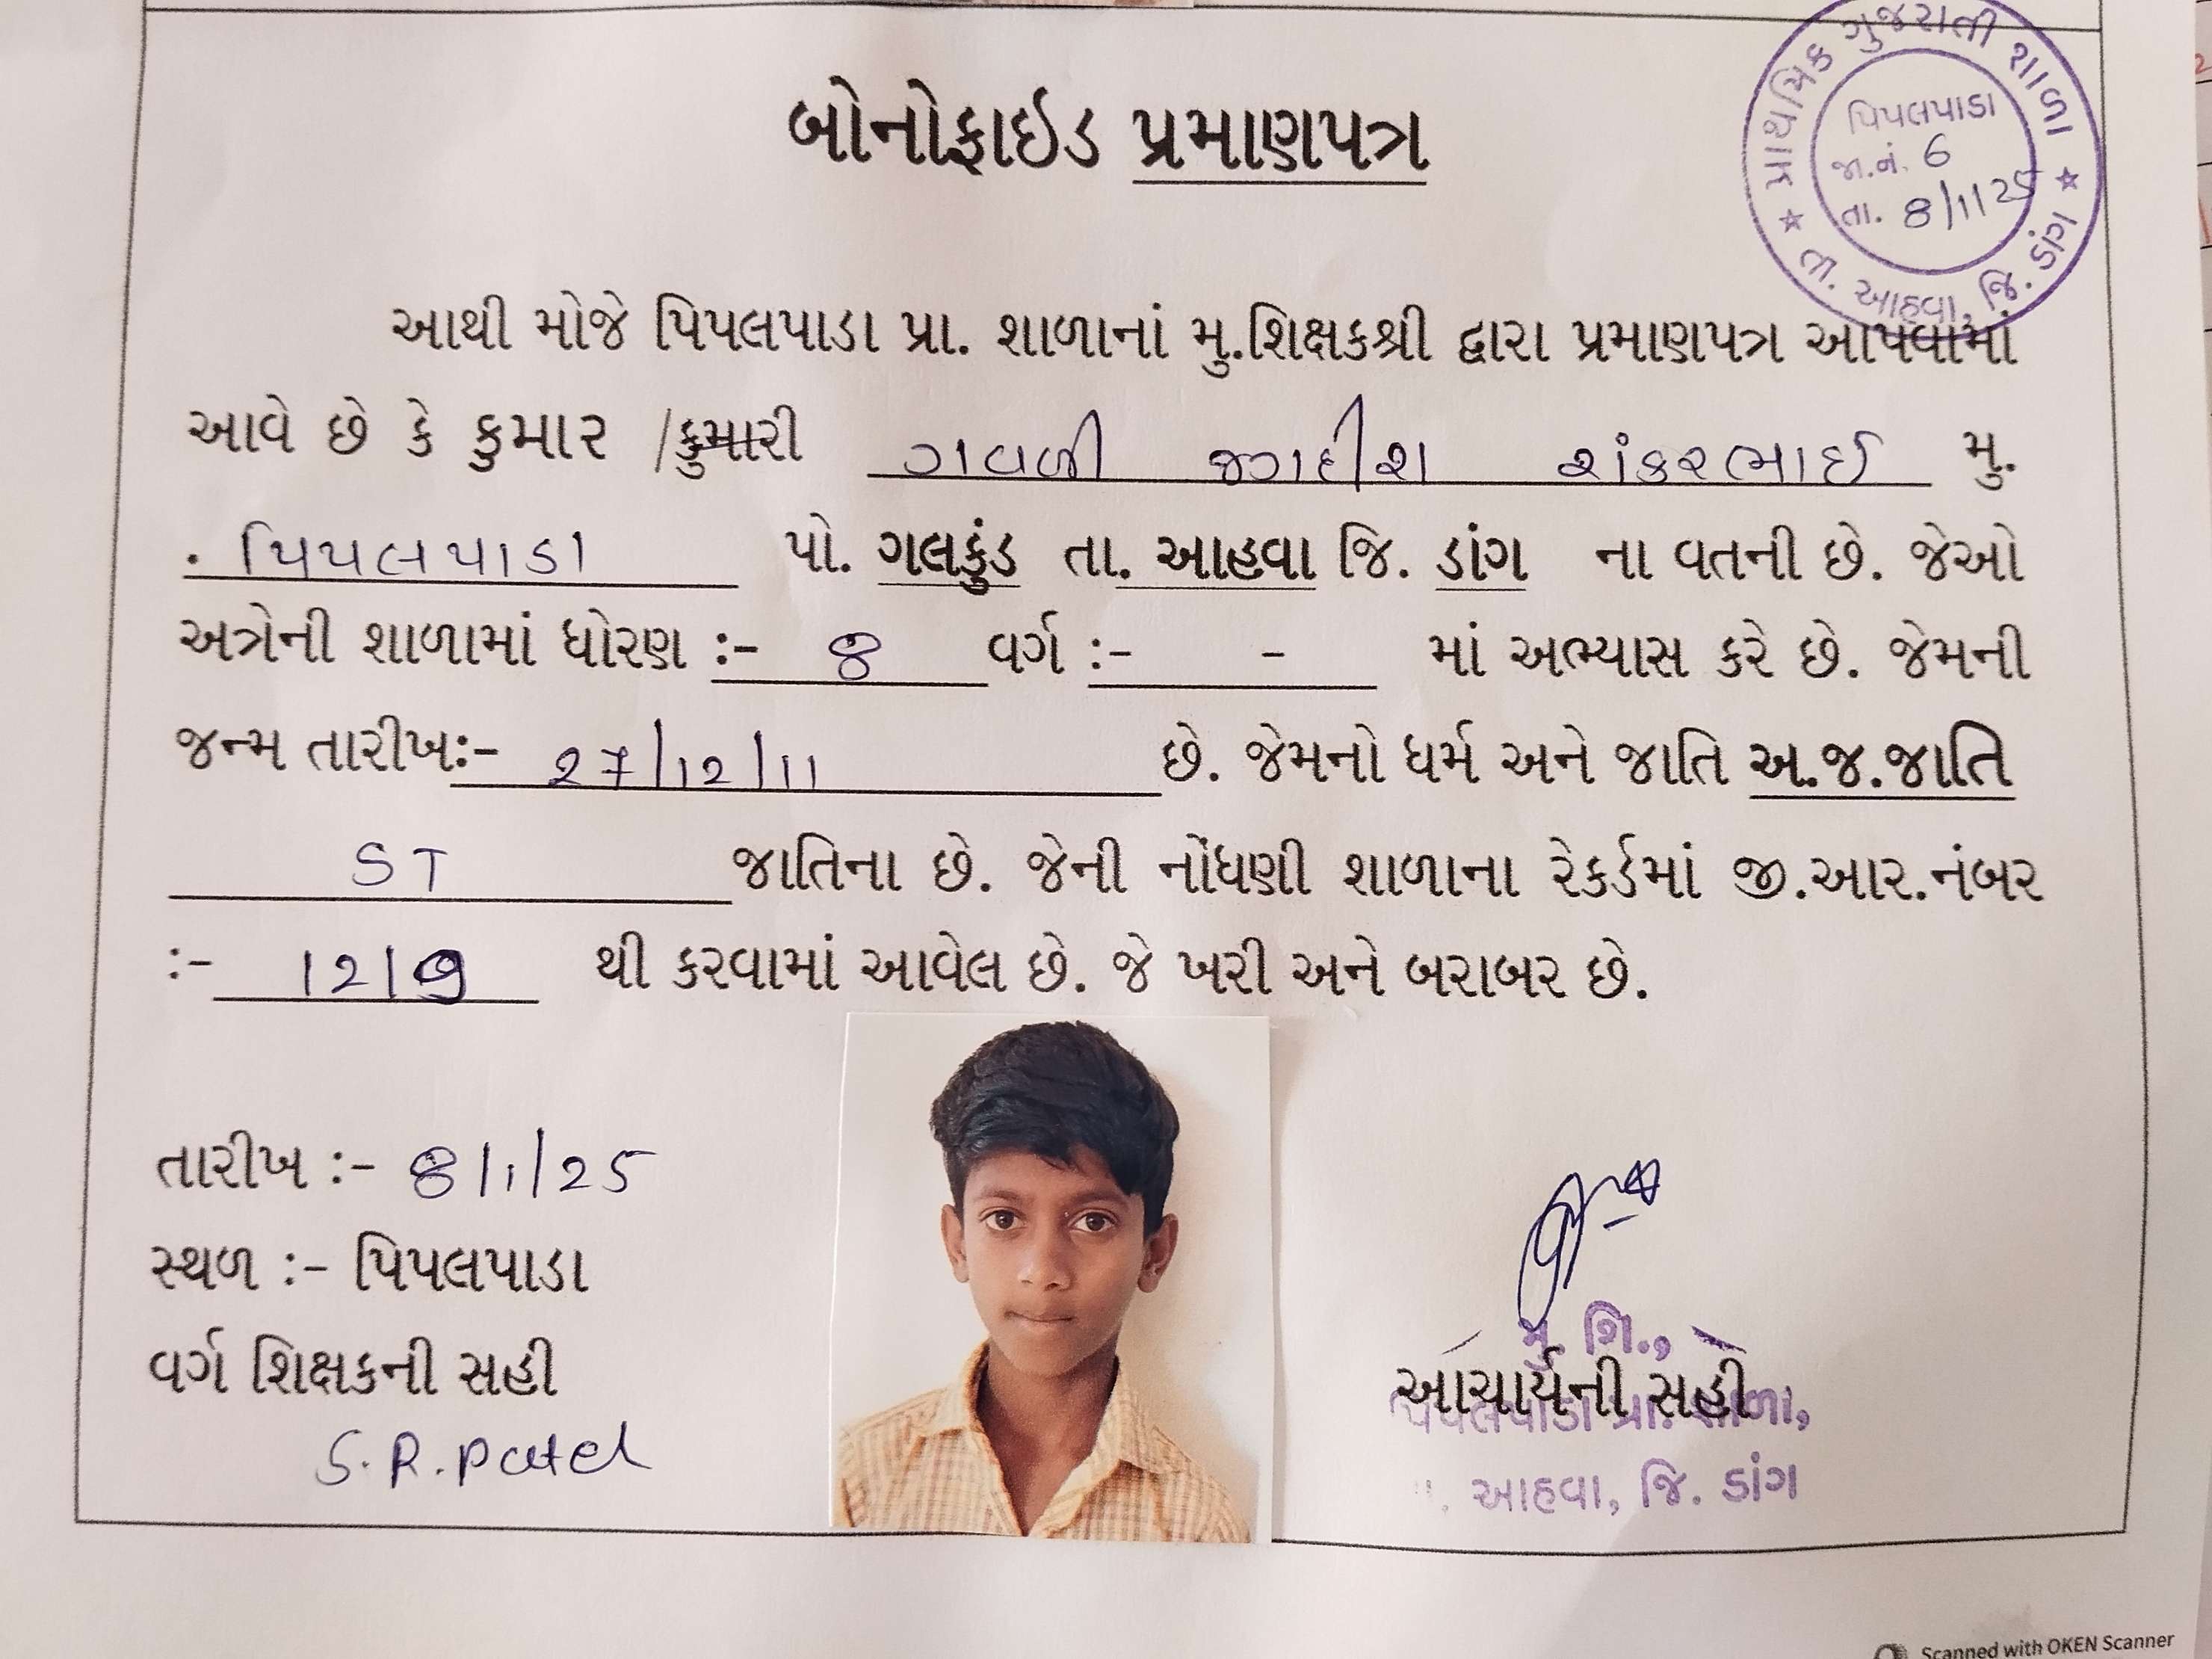 બોનોફાઇડ પ્રમાણપત્ર
પ્રાથમિક ગુજરાતી શાળા
પિપલપાડા
જા.નં. 6
તા. 8/1/25
★ તા. આહવા, જિ. ડાંગ ★
આથી મોજે પિપલપાડા પ્રા. શાળાનાં મુ.શિક્ષકશ્રી દ્વારા પ્રમાણપત્ર આપવામાં
આવે છે કે કુમાર /કુમારી ગવળી જગદીશ શંકરભાઈ મુ.
. પિપલપાડા પો. ગલકુંડ તા. આહવા જિ. ડાંગ ના વતની છે. જેઓ
અત્રેની શાળામાં ધોરણ :- 8 વર્ગ :- - માં અભ્યાસ કરે છે. જેમની
જન્મ તારીખઃ- 27/12/11 છે. જેમનો ધર્મ અને જાતિ અ.જ.જાતિ
ST જાતિના છે. જેની નોંધણી શાળાના રેકર્ડમાં જી.આર.નંબર
:- થી કરવામાં આવેલ છે. જે ખરી અને બરાબર છે.
તારીખ :- 8/1/25
સ્થળ :- પિપલપાડા
વર્ગ શિક્ષકની સહી
S.R.Patel
મુ. શિ.,
આચાર્યની સહી
પિપલપાડા પ્રા. શાળા,
આહવા, જિ. ડાંગ
Scanned with OKEN Scanner